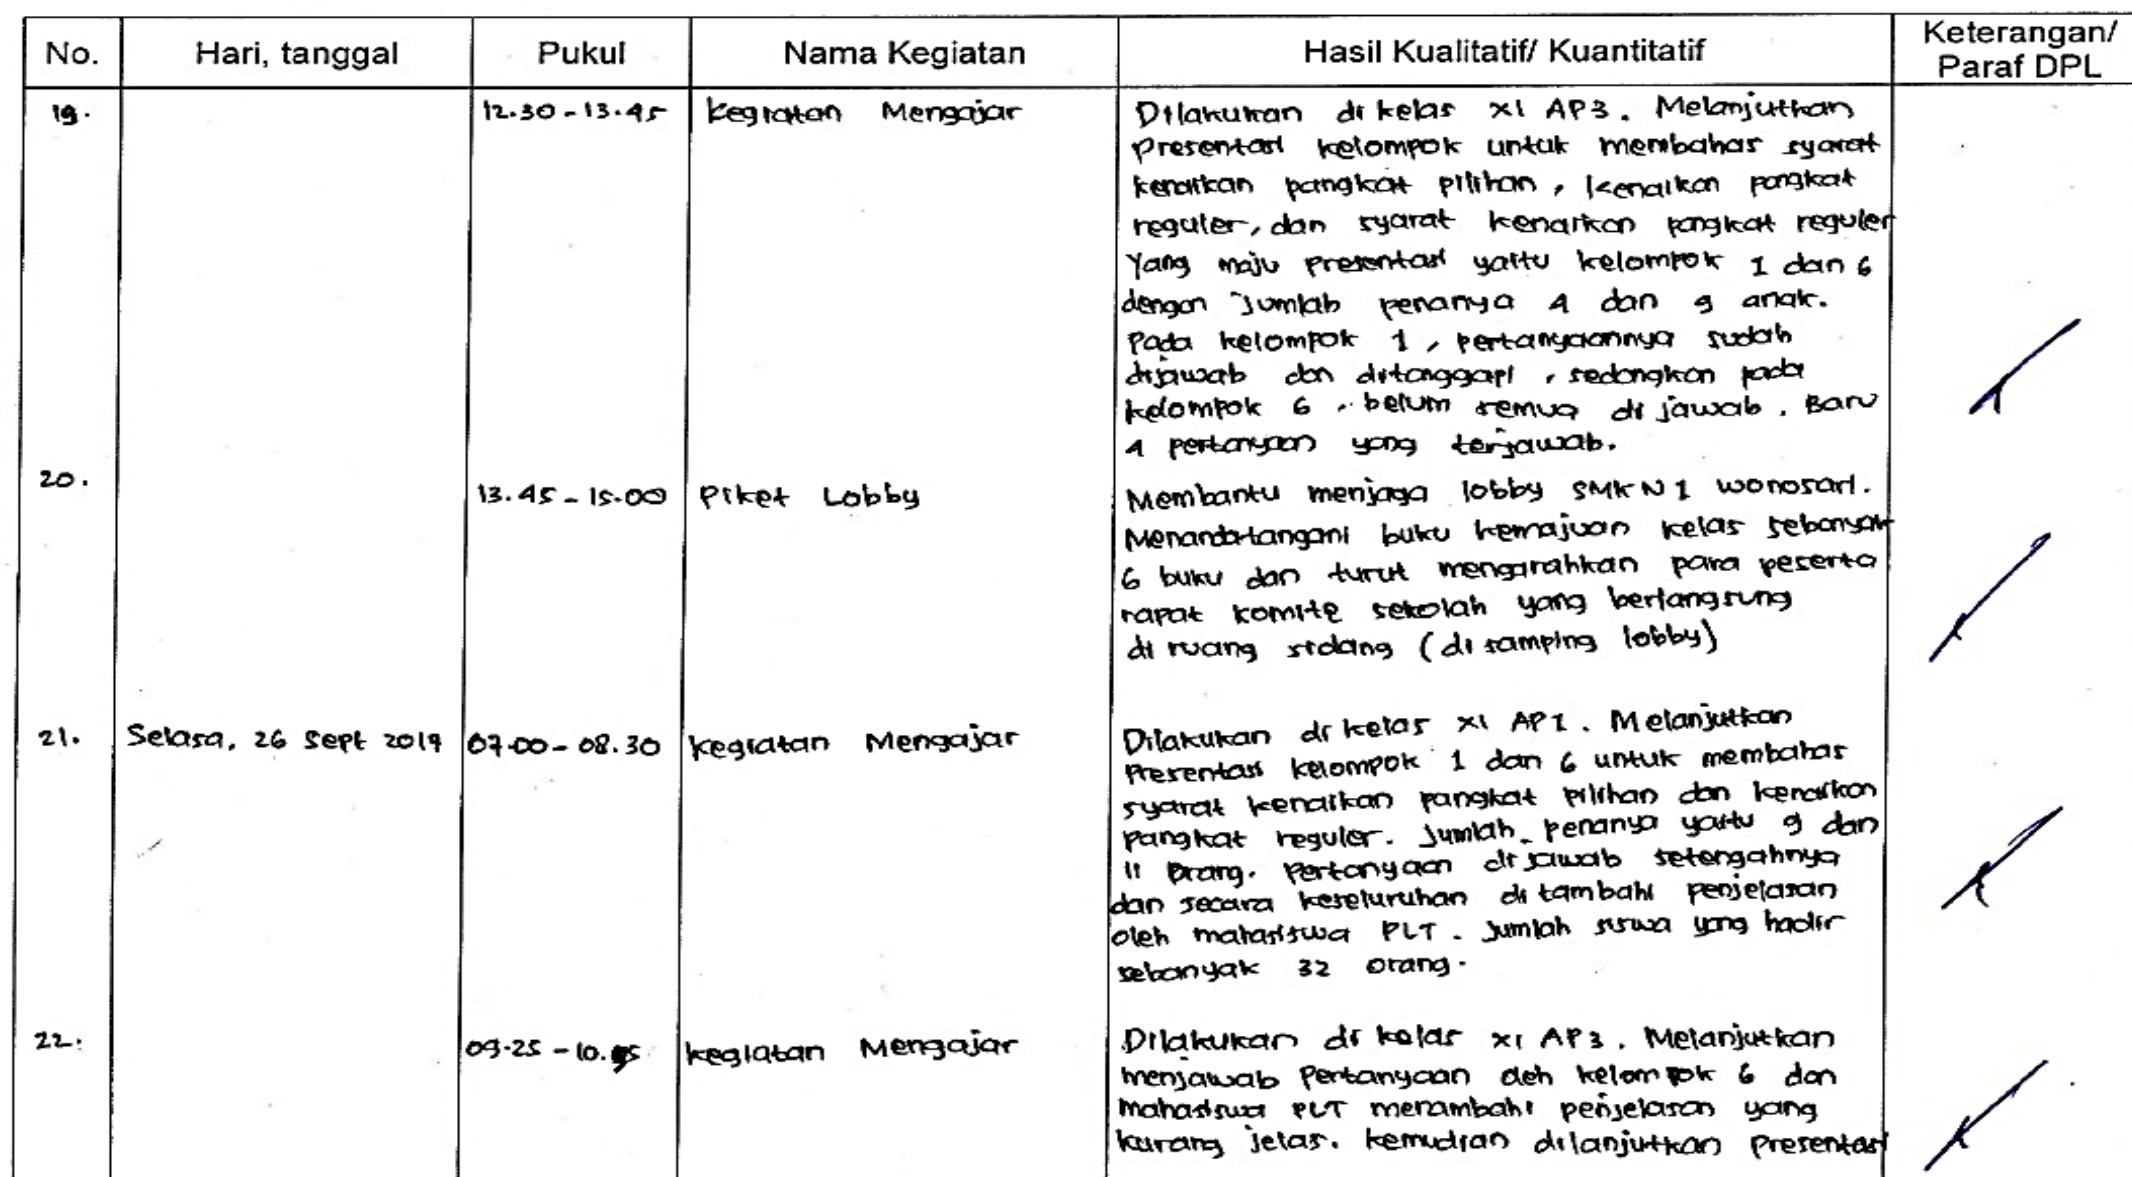 No. Hari, tanggal Pukul Nama Kegiatan Hasil Kualitatif/ Kuantitatif Keterangan/ Paraf DPL
19. 12.30 - 13.45 Kegiatan Mengajar Dilakukan di kelas XI AP3. Melanjutkan
presentasi kelompok untuk membahas syarat
kenaikan pangkat pilihan, kenaikan pangkat
reguler, dan syarat kenaikan pangkat reguler
Yang maju presentasi yaitu kelompok 1 dan 6
dengan jumlah penanya 4 dan 9 anak.
Pada kelompok 1, pertanyaannya sudah
dijawab dan ditanggapi, sedangkan pada
kelompok 6, belum semua di jawab. Baru
4 pertanyaan yang terjawab.
20. 13.45 - 15.00 Piket Lobby Membantu menjaga lobby SMK N 1 Wonosari.
Menandatangani buku kemajuan kelas sebanyak
6 buku dan turut mengarahkan para peserta
rapat komite sekolah yang berlangsung
di ruang sidang (di samping lobby)
21. Selasa, 26 Sept 2017 07.00 - 08.30 Kegiatan Mengajar Dilakukan di kelas XI AP1. Melanjutkan
Presentasi kelompok 1 dan 6 untuk membahas
syarat kenaikan pangkat pilihan dan kenaikan
pangkat reguler. Jumlah penanya yaitu 9 dan
11 orang. Pertanyaan di jawab setengahnya
dan secara keseluruhan di tambahi penjelasan
oleh mahasiswa PLT. Jumlah siswa yang hadir
sebanyak 32 orang.
22. 09.25 - Kegiatan Mengajar Dilakukan di kelas XI AP3. Melanjutkan
menjawab Pertanyaan oleh kelompok 6 dan
mahasiswa PLT menambahi penjelasan yang
kurang jelas. Kemudian dilanjutkan presentasi